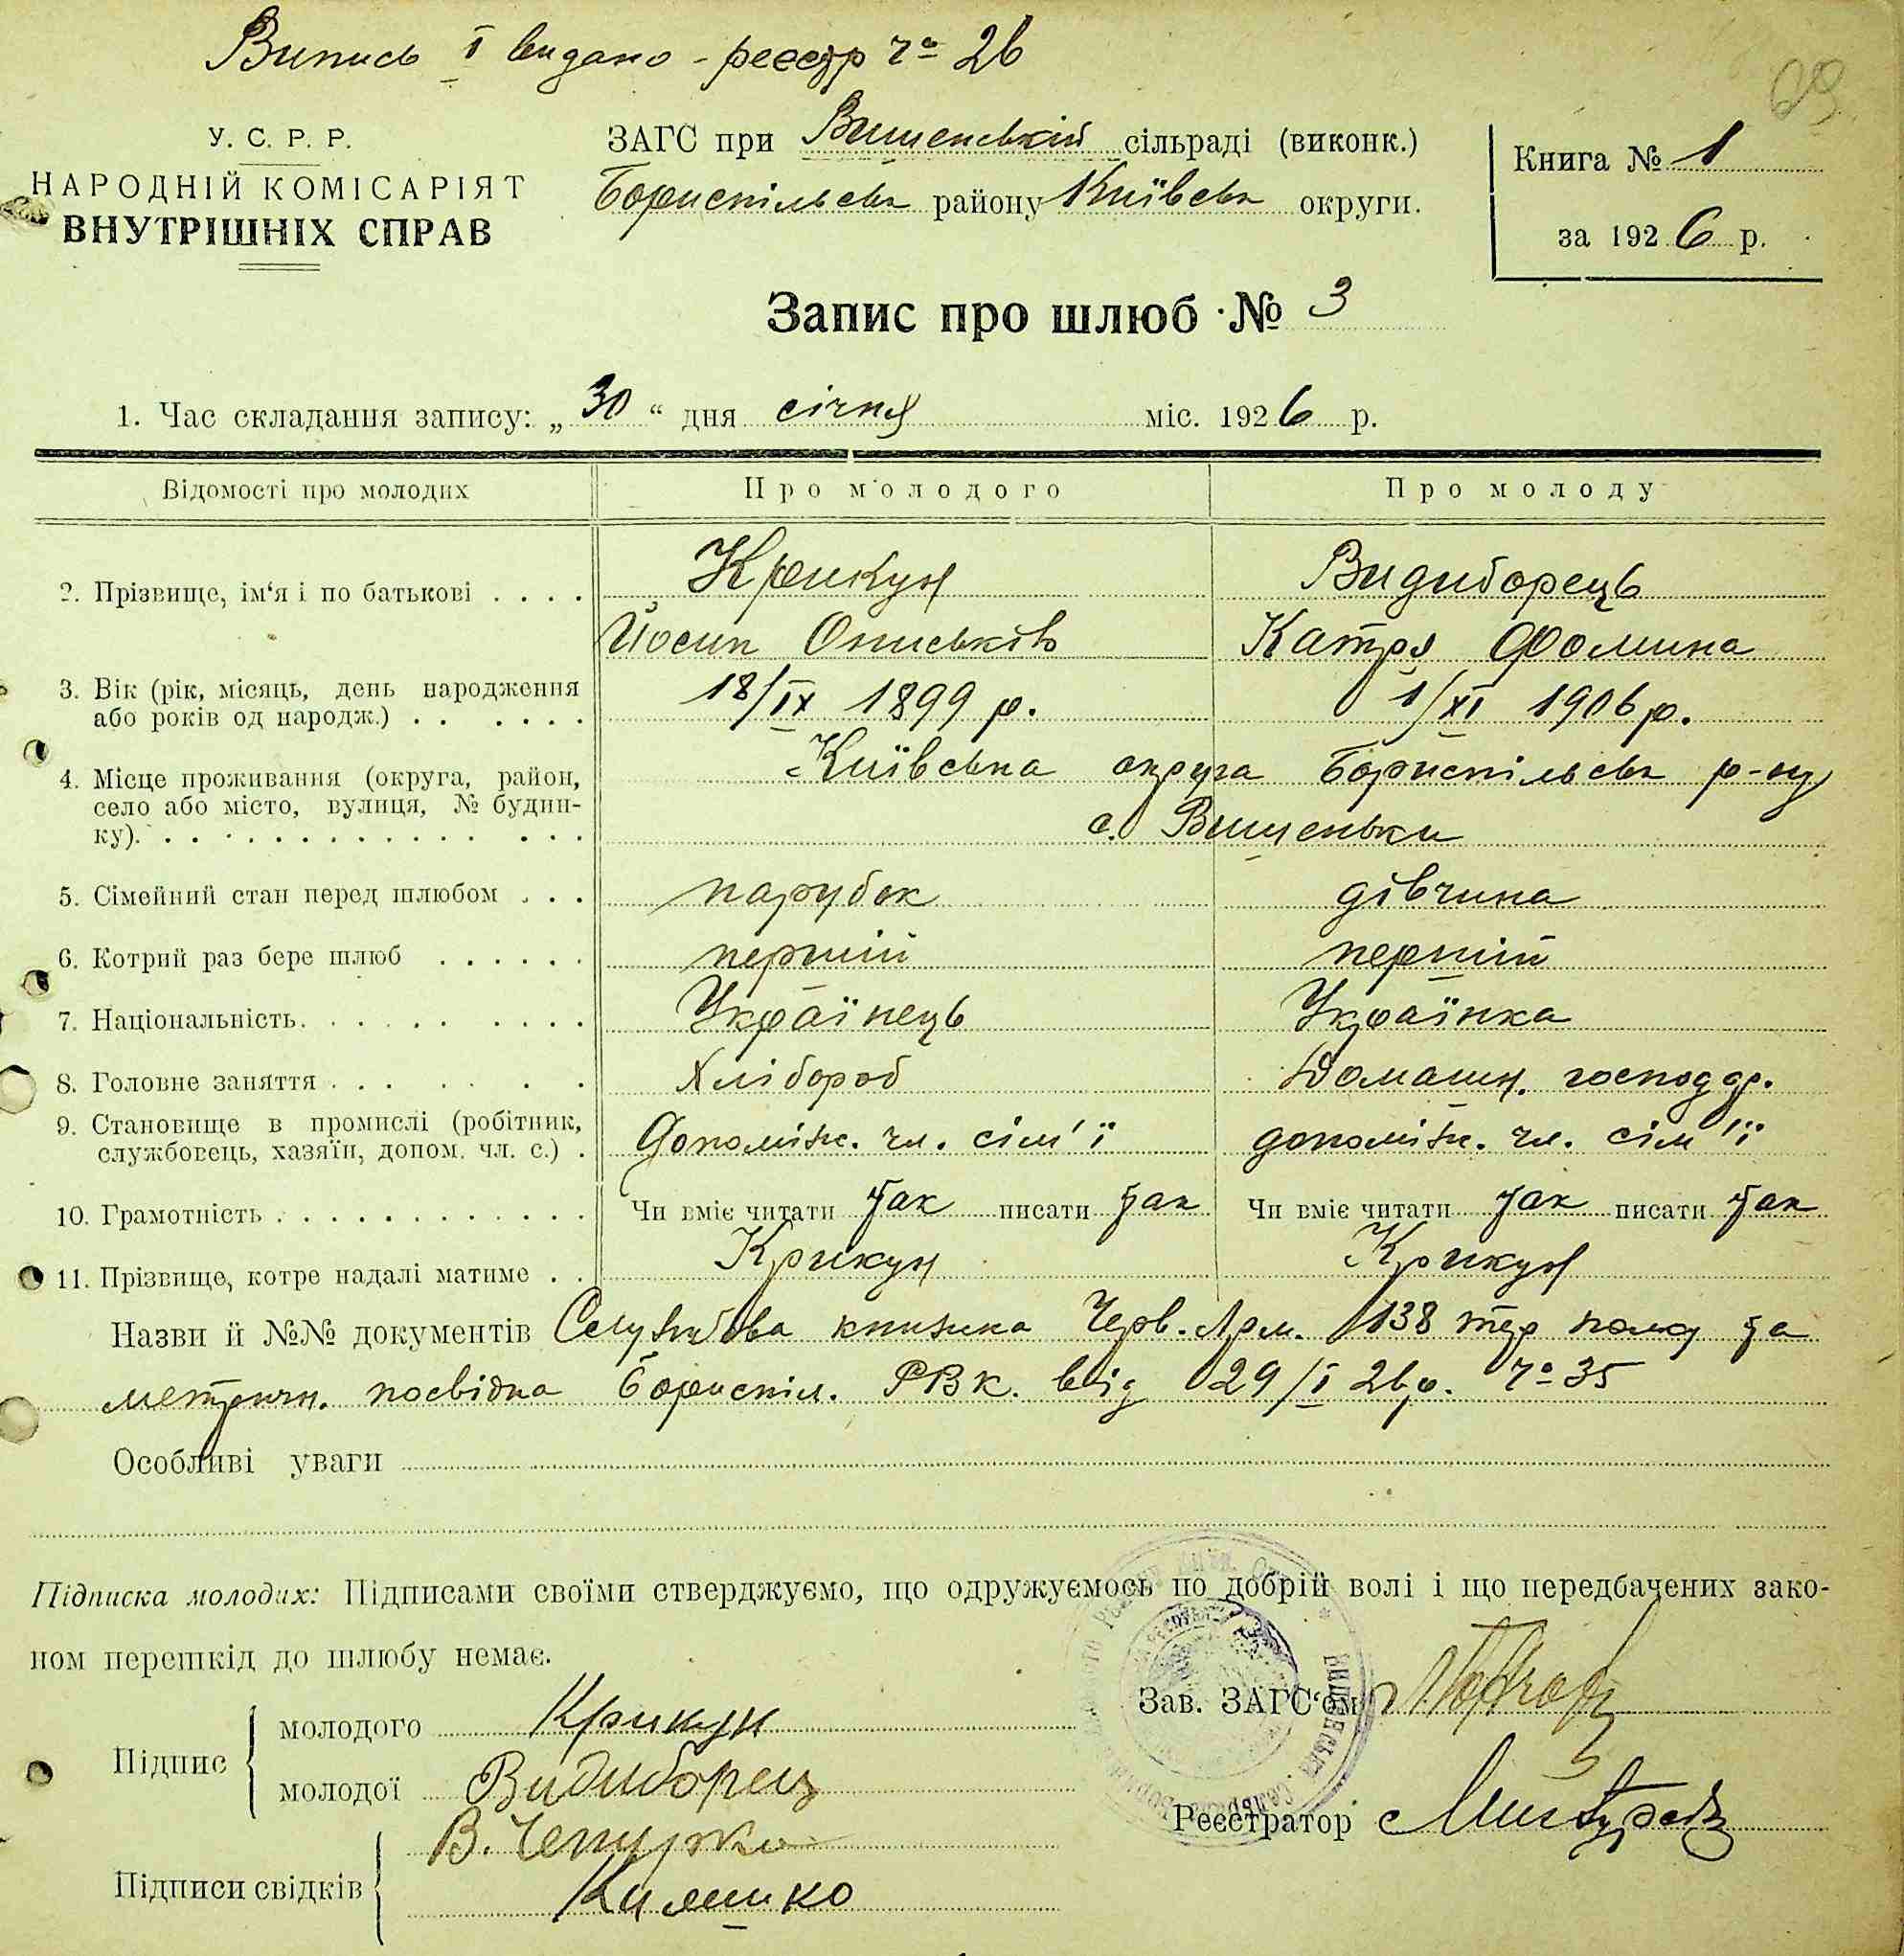 Випись I видано - реєстр ч° 26
69
У. С. Р. Р.
НАРОДНІЙ КОМІСАРІЯТ
ВНУТРІШНІХ СПРАВ
ЗАГС при Вишенській сільраді (виконк.)
Бориспільськ району Київськ округи.
Книга № 1
за 1926 р.
Запис про шлюб № 3
1. Час складання запису: „30“ дня січня міс. 1926 р.
Відомості про молодих Про молодого Про молоду
2. Прізвище, ім‘я і по батькові . . . . Крикун Видиборець
Йосип Описьків Катря Фомина
3. Вік (рік, місяць, день народження
або років од народж.) . . . . . . 18/IX 1899 р. 1/XI 1906 р.
4. Місце проживання (округа, район, Київська округа Бориспільськ р-ну
село або місто, вулиця, № будин-
ку). . . . . . . . . . . . . . с. Вишеньки
5. Сімейний стан перед шлюбом . . . парубок дівчина
6. Котрий раз бере шлюб . . . . . . перший перший
7. Національність. . . . . . . . . . Українець Українка
8. Головне заняття . . . . . . . Хлібороб Домашн. господар.
9. Становище в промислі (робітник,
службовець, хазяїн, допом. чл. с.) . допоміжн. чл. сім'ї допоміжн. чл. сім'ї
10. Грамотність . . . . . . . . . . . . Чи вміє читати так писати так Чи вміє читати так писати так
11. Прізвище, котре надалі матиме . . Крикун Крикун
Назви й №№ документів Службова книжка Черв. Арм. 138 тер полку та
метричн. посвідка Бориспіл. РВК. від 29/I 26 р. ч° 35
Особливі уваги
Підписка молодих: Підписами своїми стверджуємо, що одружуємось по добрій волі і що передбачених зако-
ном перешкід до шлюбу немає.
Зав. ЗАГС‘ом
Підпис
молодого Крикун
молодої Видиборец
Реєстратор
Підписи свідків
В. Чепурко
Кияшко